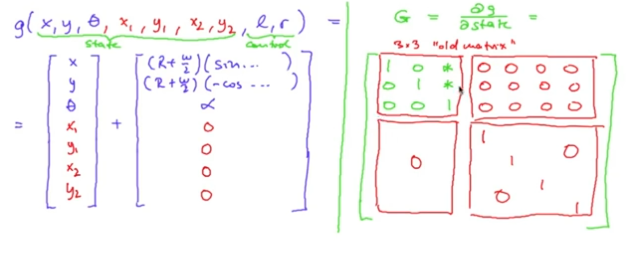 g( x, y, θ, x₁, y₁, x₂, y₂, l, r ) =
state control
= [ x y θ x₁ y₁ x₂ y₂ ] + [ (R+w/2)(sin... ) (R+w/2)(-cos... ) α 0 0 0 0 ]
G = ∂g/∂state =
3x3 "old matrix"
1 0 * 0 0 0 0
0 1 * 0 0 0 0
0 0 1 0 0 0 0
0 1 1 0 0 1 1